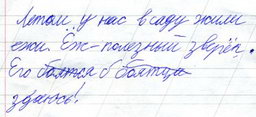 Летом у нас в саду жили
ежи. Ёж - полезный зверёк.
Его боятся б болтця
здаюсь!